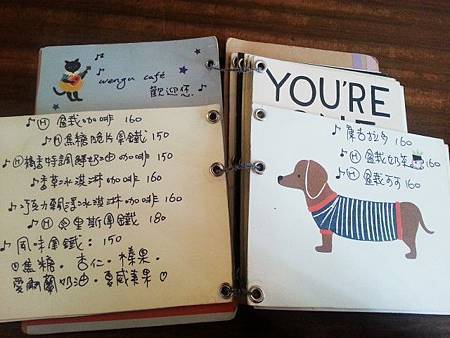 wengu café
歡迎您♪
♪Ⓗ盆栽咖啡 160
♪Ⓗ焦糖脆片拿鐵 150
♪Ⓗ榛香特調鮮奶油咖啡 150
♪香草冰淇淋咖啡 160
♪巧克力飄浮冰淇淋咖啡 160
♪Ⓗ貝里斯拿鐵 180
♪風味拿鐵：150
焦糖．杏仁．榛果．
愛爾蘭奶油．夏威夷果♡
YOU'RE
♪蒙古拉多 160
♪Ⓗ盆栽奶茶 160
♪Ⓗ盆栽可可 160